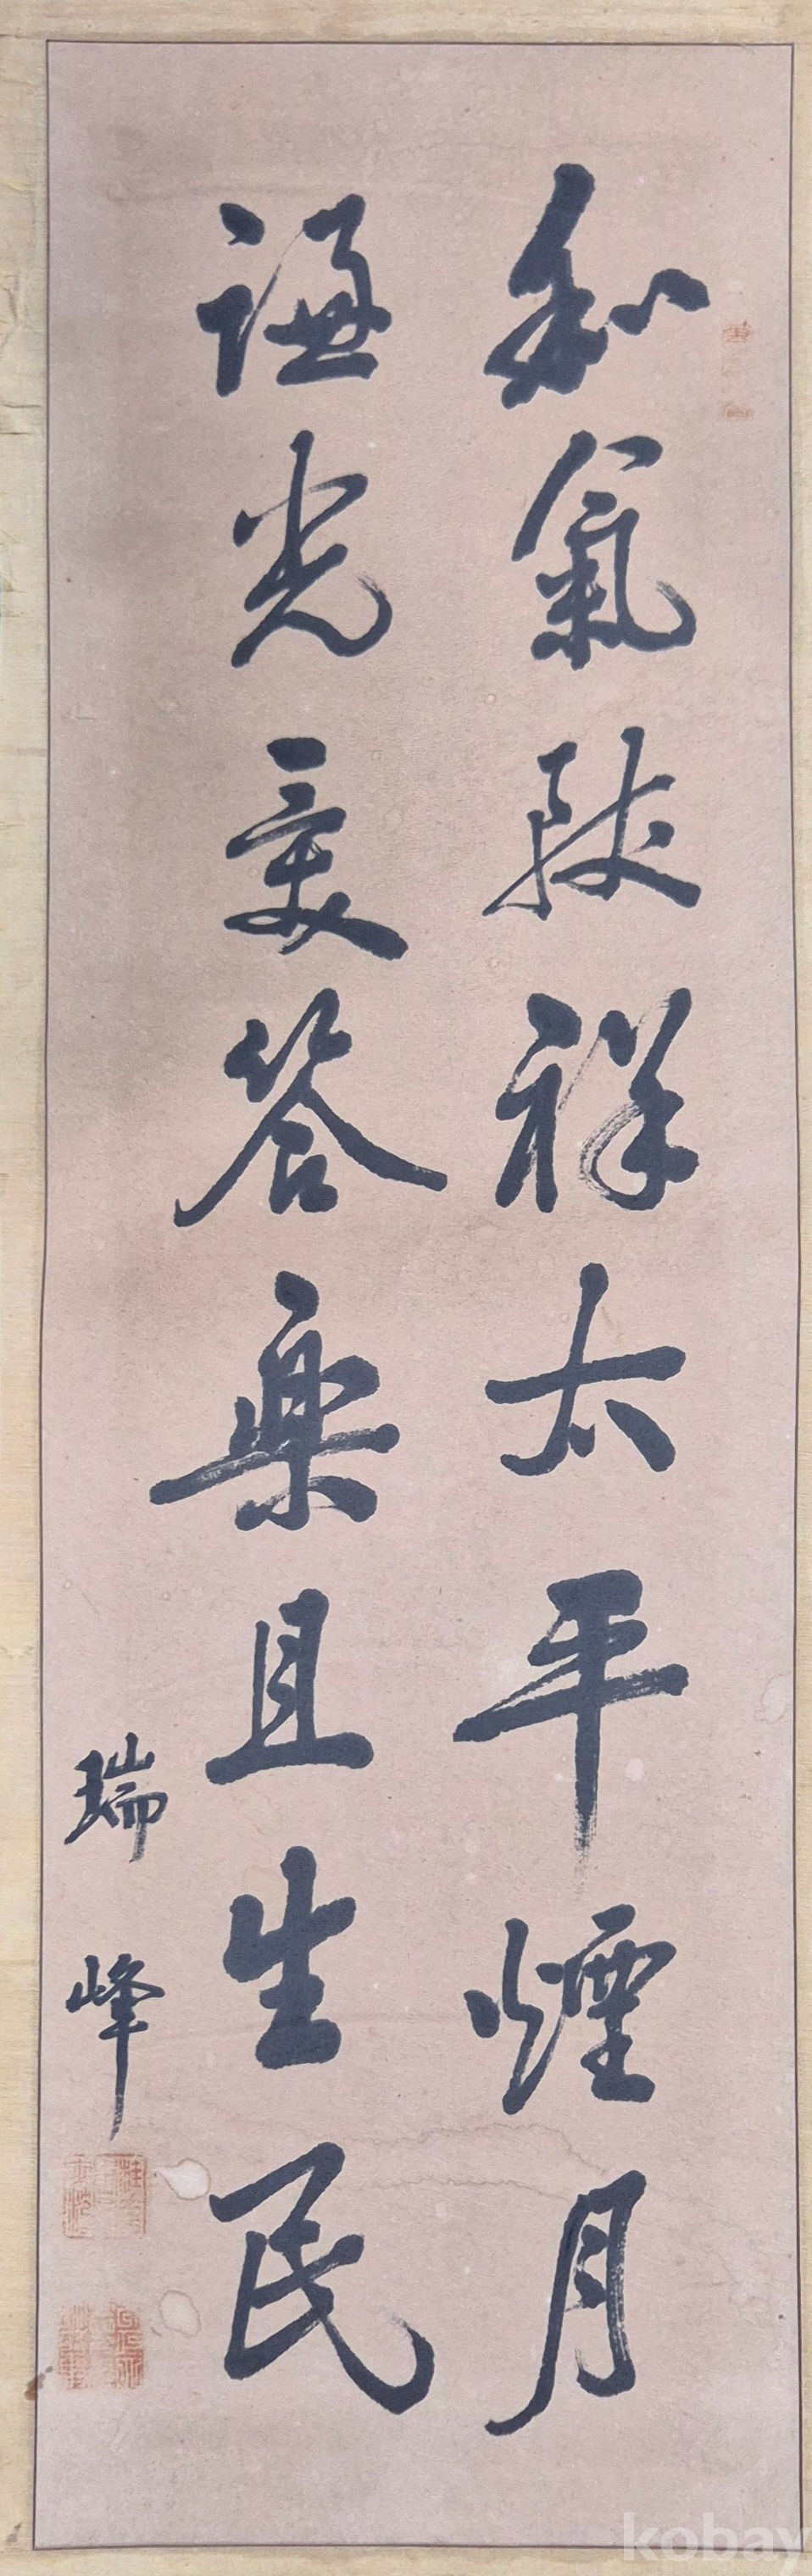 和氣致祥太平煙月
謙光受益樂且生民
瑞峰
kobay